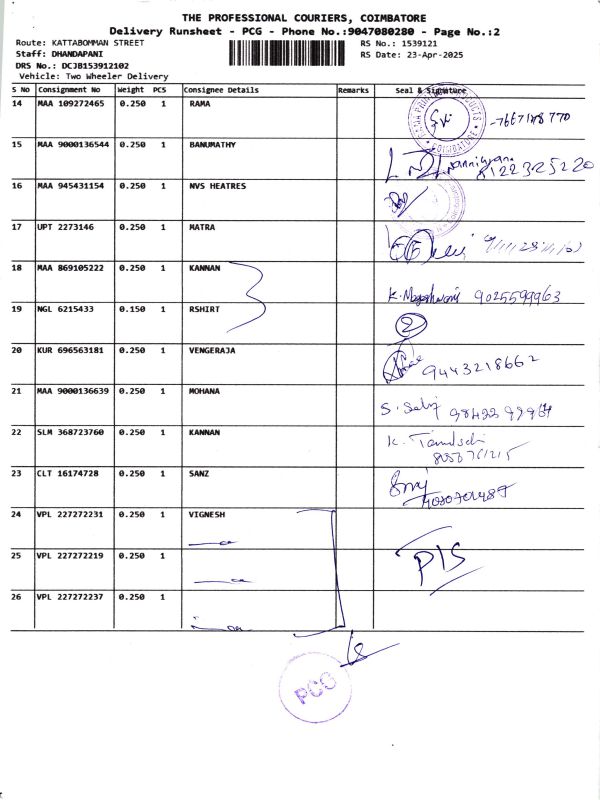 THE PROFESSIONAL COURIERS, COIMBATORE
Delivery Runsheet - PCG - Phone No.:9047080280 - Page No.:2
Route: KATTABOMMAN STREET
Staff: DHANDAPANI
DRS No.: DCJB153912102
Vehicle: Two Wheeler Delivery
RS No.: 1539121
RS Date: 23-Apr-2025
S No Consignment No Weight PCS Consignee Details Remarks Seal & Signature
14 MAA 109272465 0.250 1 RAMA
15 MAA 9000136544 0.250 1 BANUMATHY
16 MAA 945431154 0.250 1 NVS HEATRES
17 UPT 2273146 0.250 1 MATRA
18 MAA 869105222 0.250 1 KANNAN K. 9025599963
19 NGL 6215433 0.150 1 RSHIRT 2
20 KUR 696563181 0.250 1 VENGERAJA 9443218662
21 MAA 9000136639 0.250 1 MOHANA S.
22 SLM 368723760 0.250 1 KANNAN K.
23 CLT 16174728 0.250 1 SANZ
24 VPL 227272231 0.250 1 VIGNESH
25 VPL 227272219 0.250 1 PIS
26 VPL 227272237 0.250 1
PCG